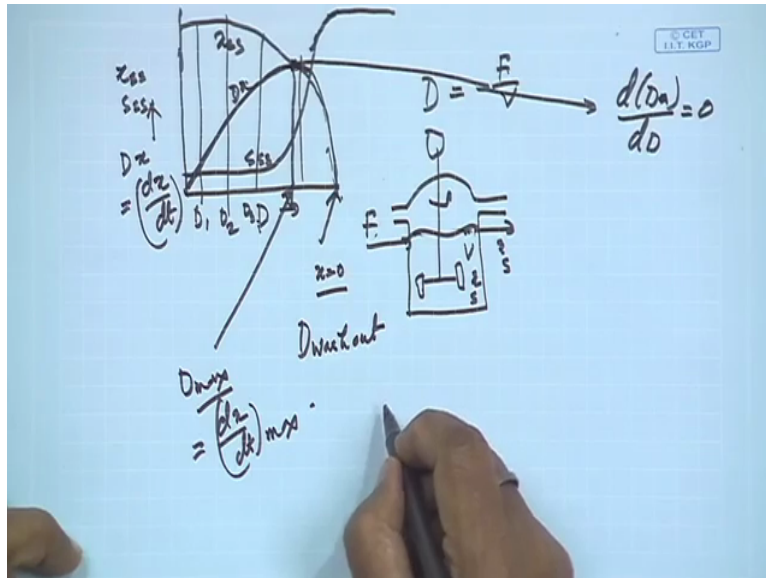 © CET
I.I.T. KGP
xss
sss
Dx
= (dx/dt)
xss
Dx
sss
D1 D2 D3 D
D = F/V
d(Dx)/dD = 0
F
V
x
s
x
s
x=0
Dwashout
Dmax
= (dx/dt) max